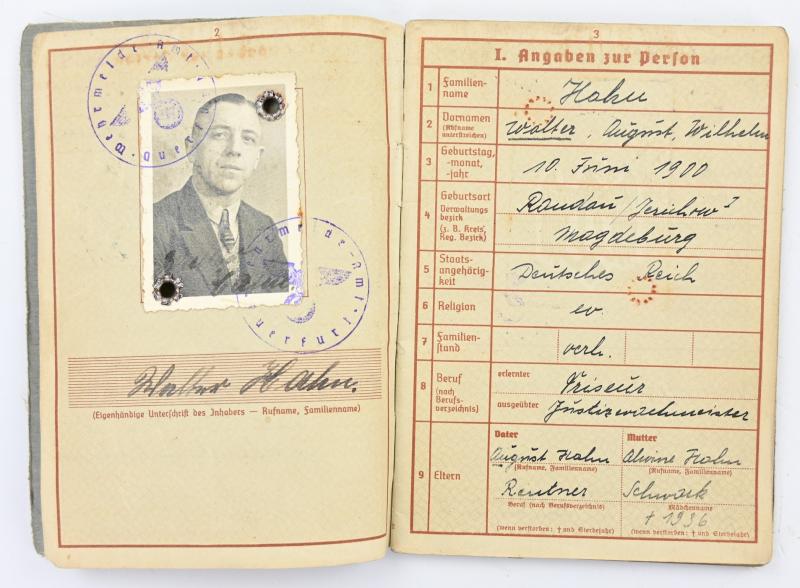 2
Wehrmelde-Amt
Querfurt
Wehrmelde-Amt
Querfurt
Walter Hahn.
(Eigenhändige Unterschrift des Inhabers — Rufname, Familienname)
3
I. Angaben zur Person
1 Familien-
name
Hahn
2 Vornamen
(Rufname
unterstreichen)
Walter, August, Wilhelm
3 Geburtstag,
-monat,
-jahr
10. Juni 1900
4 Geburtsort
Verwaltungs-
bezirk
(z. B. Kreis,
Reg. Bezirk)
Randau / Jerichow I
Magdeburg
5 Staats-
angehörig-
keit
Deutsches Reich
6 Religion
ev.
7 Familien-
stand
verh.
8 Beruf
(nach
Berufs-
verzeichnis)
erlernter
Friseur
ausgeübter
Justizwachmeister
9 Eltern
Vater
August Hahn
(Rufname, Familienname)
Rentner
Beruf (nach Berufsverzeichnis)
(wenn verstorben: † und Sterbejahr)
Mutter
Alwine Hahn
(Rufname, Familienname)
Schwark
Mädchenname
† 1936
(wenn verstorben: † und Sterbejahr)